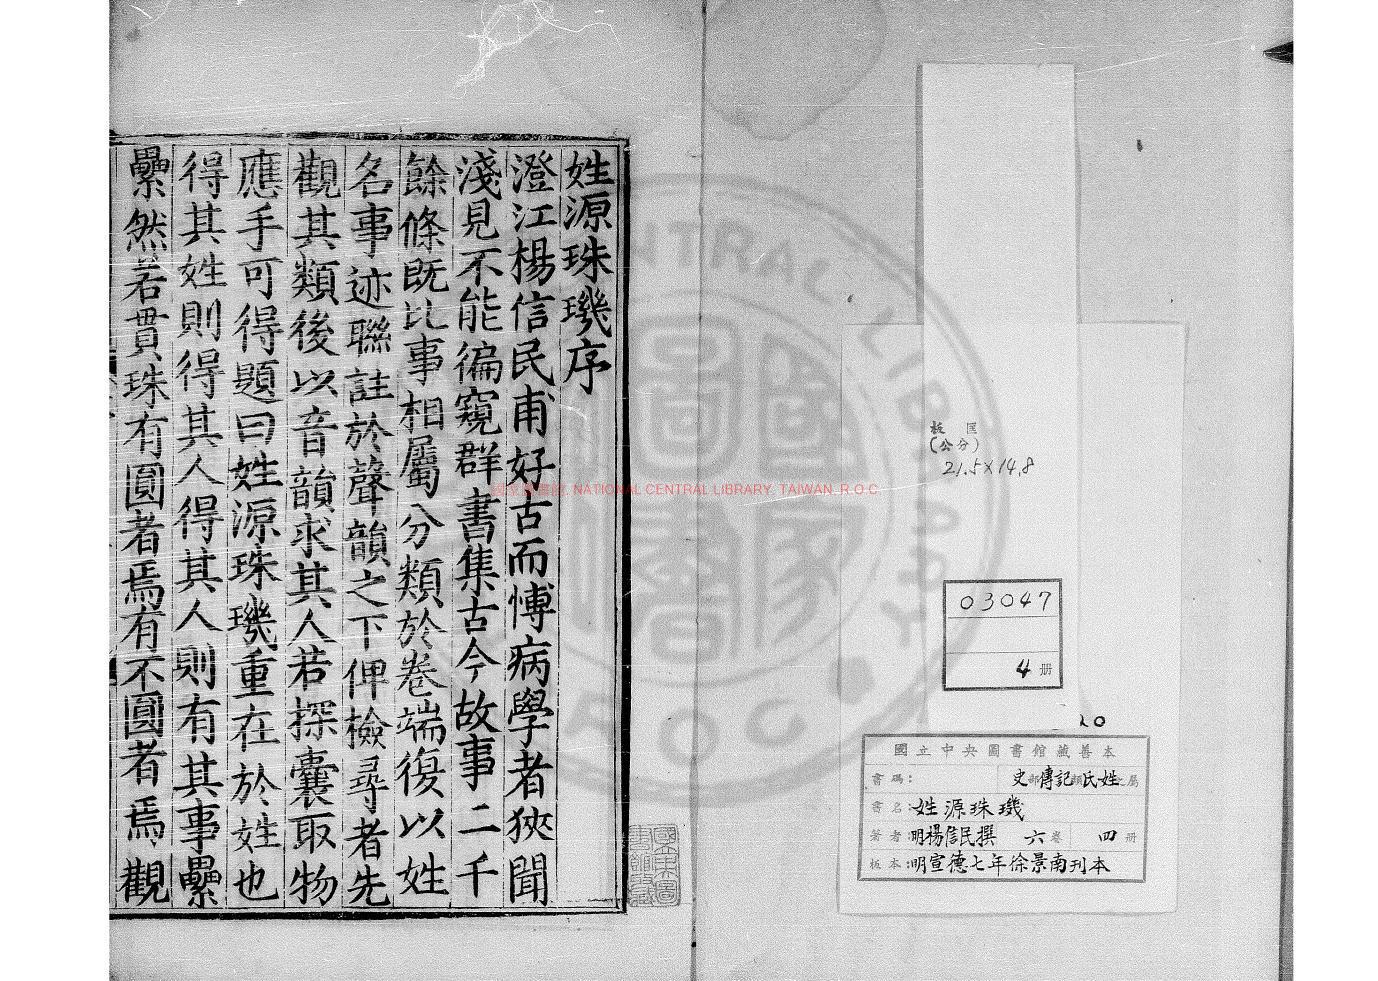 板匡
(公分)
21.5×14.8
03047
4册
國立中央圖書館藏善本
書碼： 史部傳記類氏姓之屬
書名：姓源珠璣
著者：明楊信民撰 六卷 四册
板本：明宣德七年徐景南刊本
姓源珠璣序
澄江楊信民甫好古而愽病學者狹聞
淺見不能徧窺群書集古今故事二千
餘條既比事相屬分類於卷端復以姓
名事迹聯註於聲韻之下俾檢尋者先
觀其類後以音韻求其人若探囊取物
應手可得題曰姓源珠璣重在於姓也
得其姓則得其人得其人則有其事纍
纍然若貫珠有圓者焉有不圓者焉觀
國家圖書館 NATIONAL CENTRAL LIBRARY, TAIWAN, R.O.C
CENTRAL LIBRARY
R O C